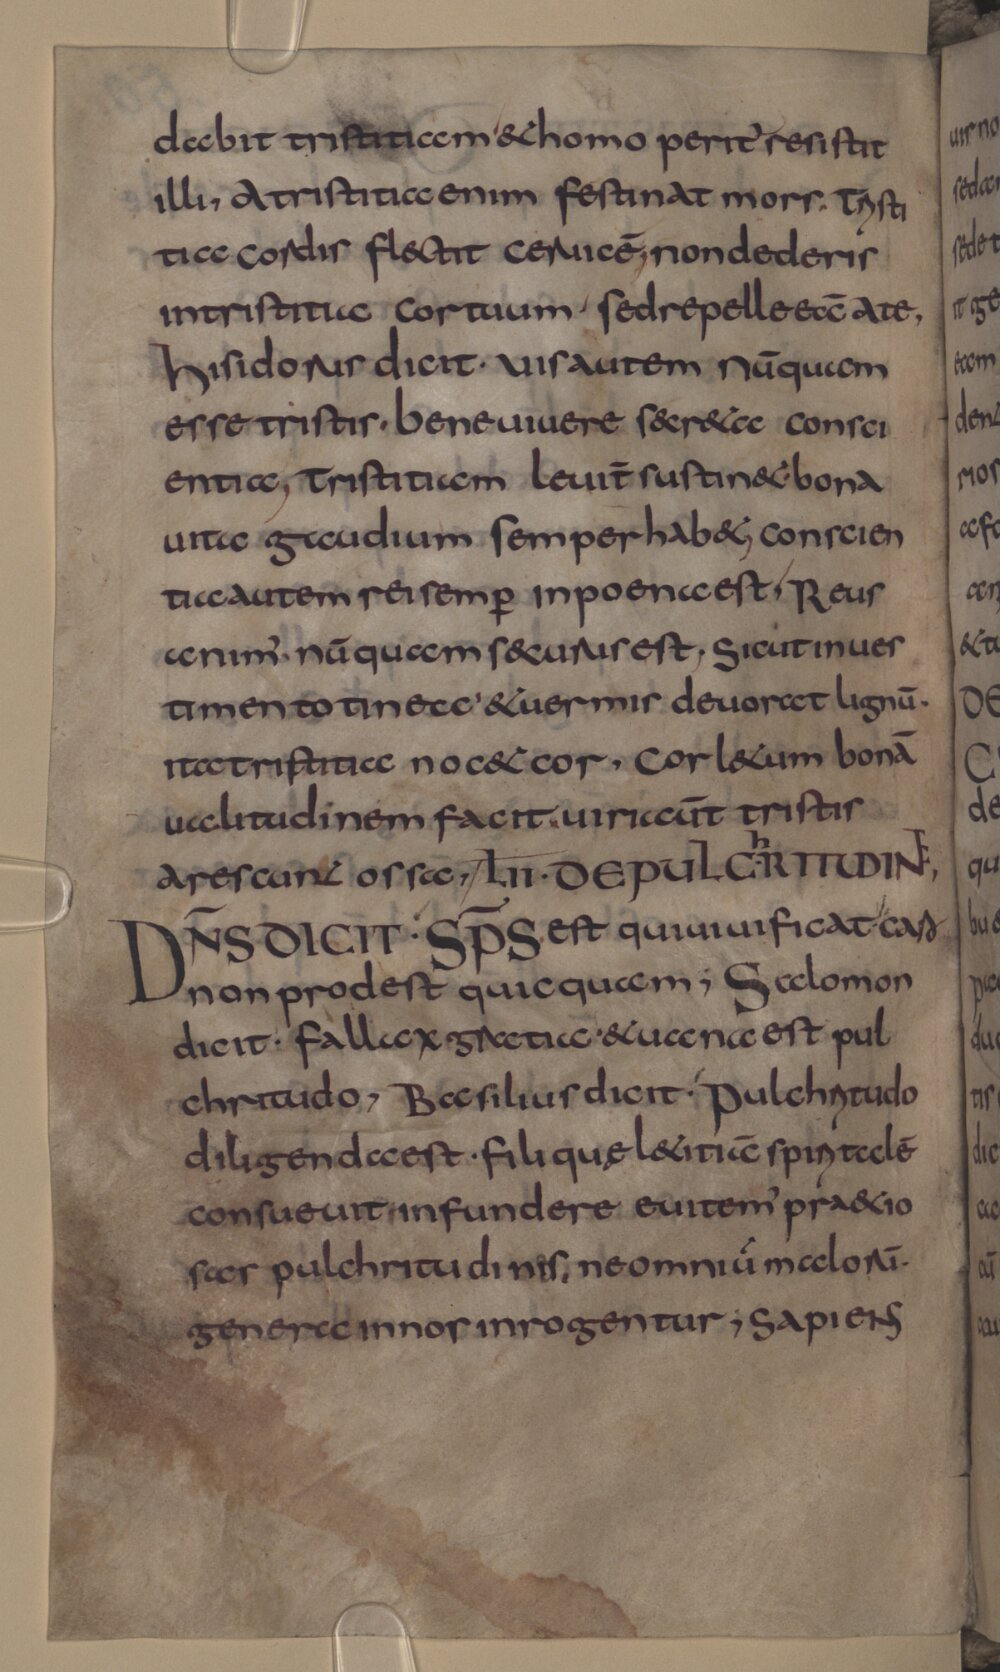 dabit tristitiam & homo perit' resistit
illi, A tristitia enim festinat mors. Tristi
tia cordis flectit ceruicē, non dederis
in tristitia cor tuum, sed repelle eā a te,
hisidorus dicit. uis autem nūquam
esse tristis. bene uiuere secr&a consci
entia, Tristitiam leuit̄ sustin& bona
uita gaudium semper hab&, conscien
tia autem rei semp̄ in poena est, Reus
animꝰ nūquam securus est, Sicut in ues
timento tinea & uermis deuorat lignū.
ita tristitia noc& cor, Cor l&um bonā
ualitudinem facit. uiri aut̄ tristis
arescunt ossa, LII. DE PULCHRITUDINE,
DN̄S DICIT. SP̄S est qui uiuificat caro
non prodest quicquam; Salomon
dicit. fallax gratia & uana est pul
chritudo, Basilius dicit. Pulchritudo
diligenda est. fili quę l&itiā spiritalē
consueuit infundere euitemꝰ pra&io
sas pulchritudinis, ne omniū malorū.
genera in nos inrogentur; Sapiens